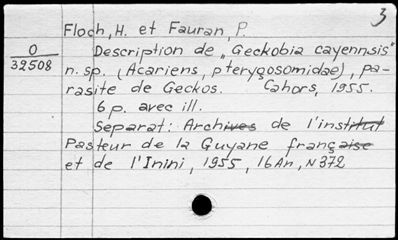 3
Floch, H. et Fauran, P.
O
32508
Description de „Geckobia cayennsis"
n. sp. (Acariens, pterygosomidae), pa-
rasite de Geckos. Cahors, 1955.
6 p. avec ill.
Separat: Archives de l'institut
Pasteur de la Guyane française
et de l'Inini, 1955, 16An, N372